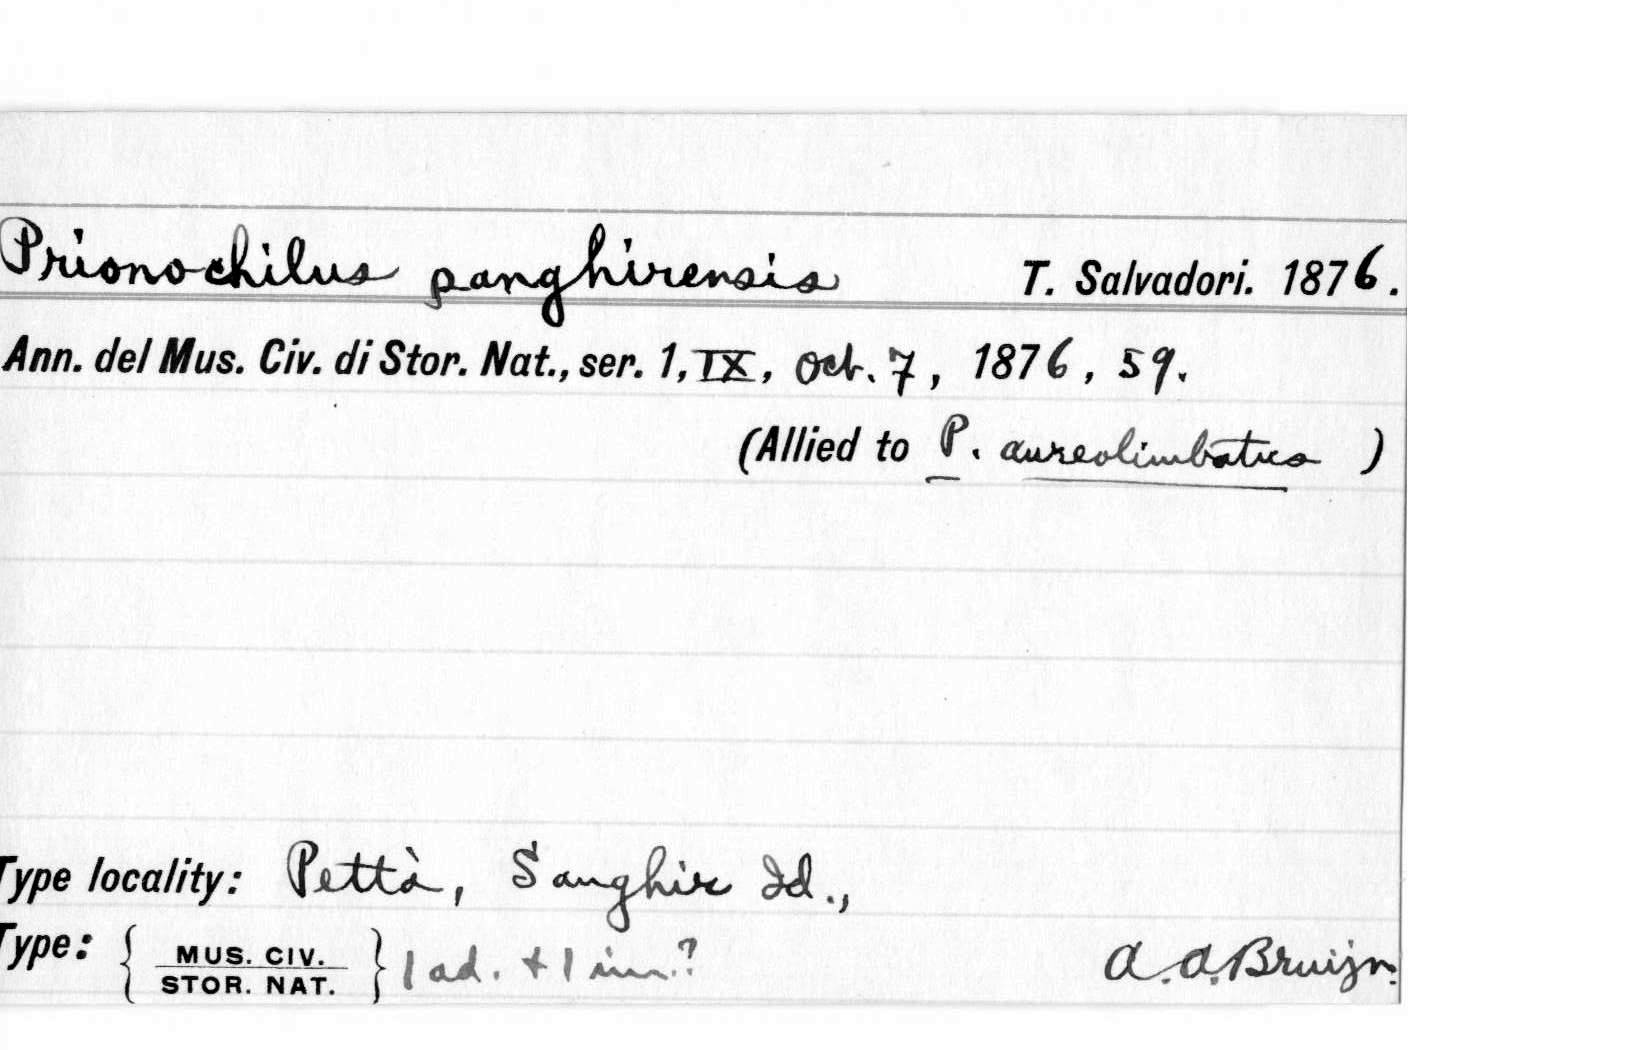 Prionochilus sanghirensis T. Salvadori. 1876.
Ann. del Mus. Civ. di Stor. Nat., ser. 1, IX, Oct. 7, 1876, 59.
(Allied to P. aureolimbatus )
Type locality: Pettà, Sanghir Id.,
Type: { MUS. CIV. STOR. NAT. } 1 ad. + 1 im.? A.A.Bruijn.